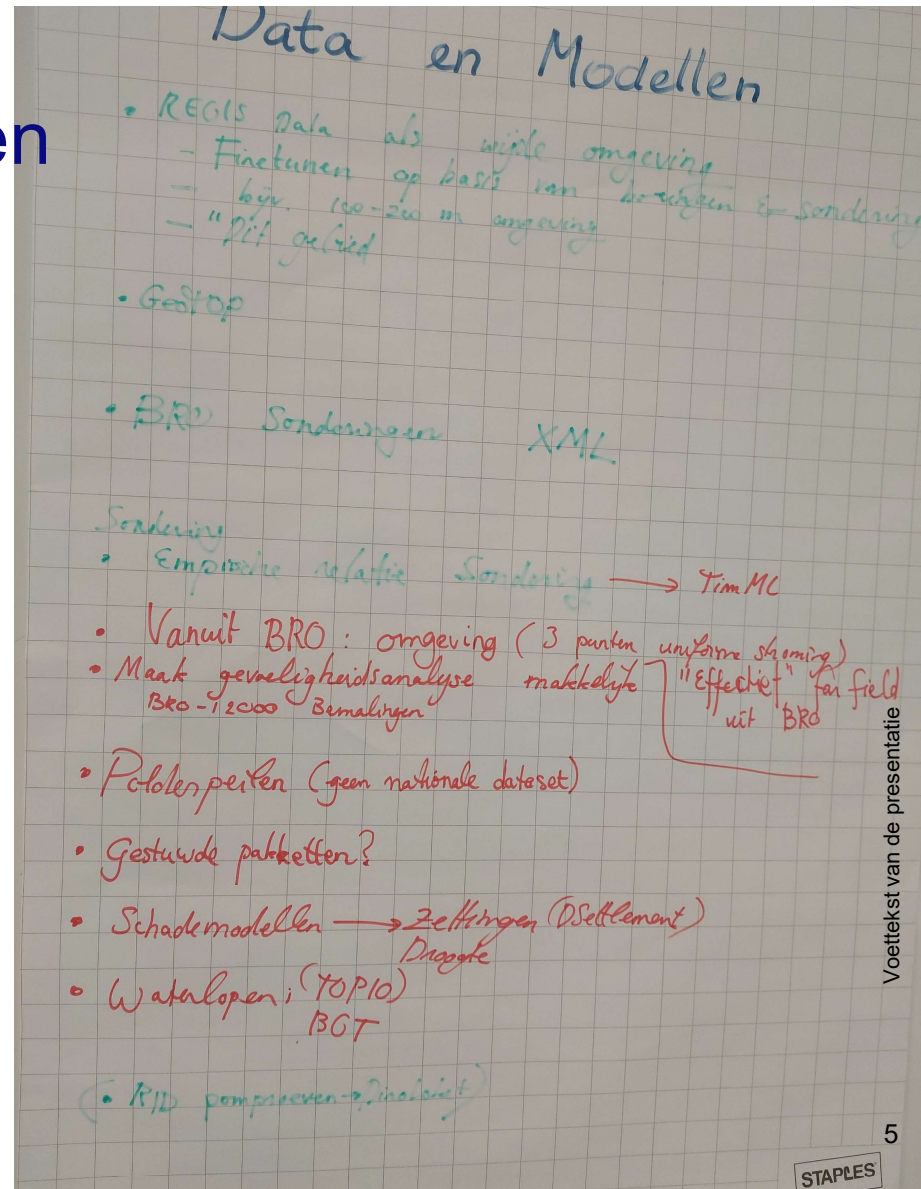 Data en Modellen
en
• REGIS Data als wijde omgeving
- Finetunen op basis van boringen & sondering
- bijv. 100-200 m omgeving
- "Dit gebied
• GeoTOP
• BRO Sonderingen XML
Sondering
• Empirische relatie Sondering → TimML
• Vanuit BRO: omgeving (3 punten uniforme stroming)
• Maak gevoeligheidsanalyse makkelijk
"Effectief" far field
BRO - 12000 Bemalingen
uit BRO
• Polderpeilen (geen nationale dataset)
• Gestuwde pakketten?
• Schademodellen → Zettingen (DSettlement)
Droogte
• Waterlopen; (TOP10)
BGT
(• pompproeven → Dinoloket)
Voettekst van de presentatie
5
STAPLES